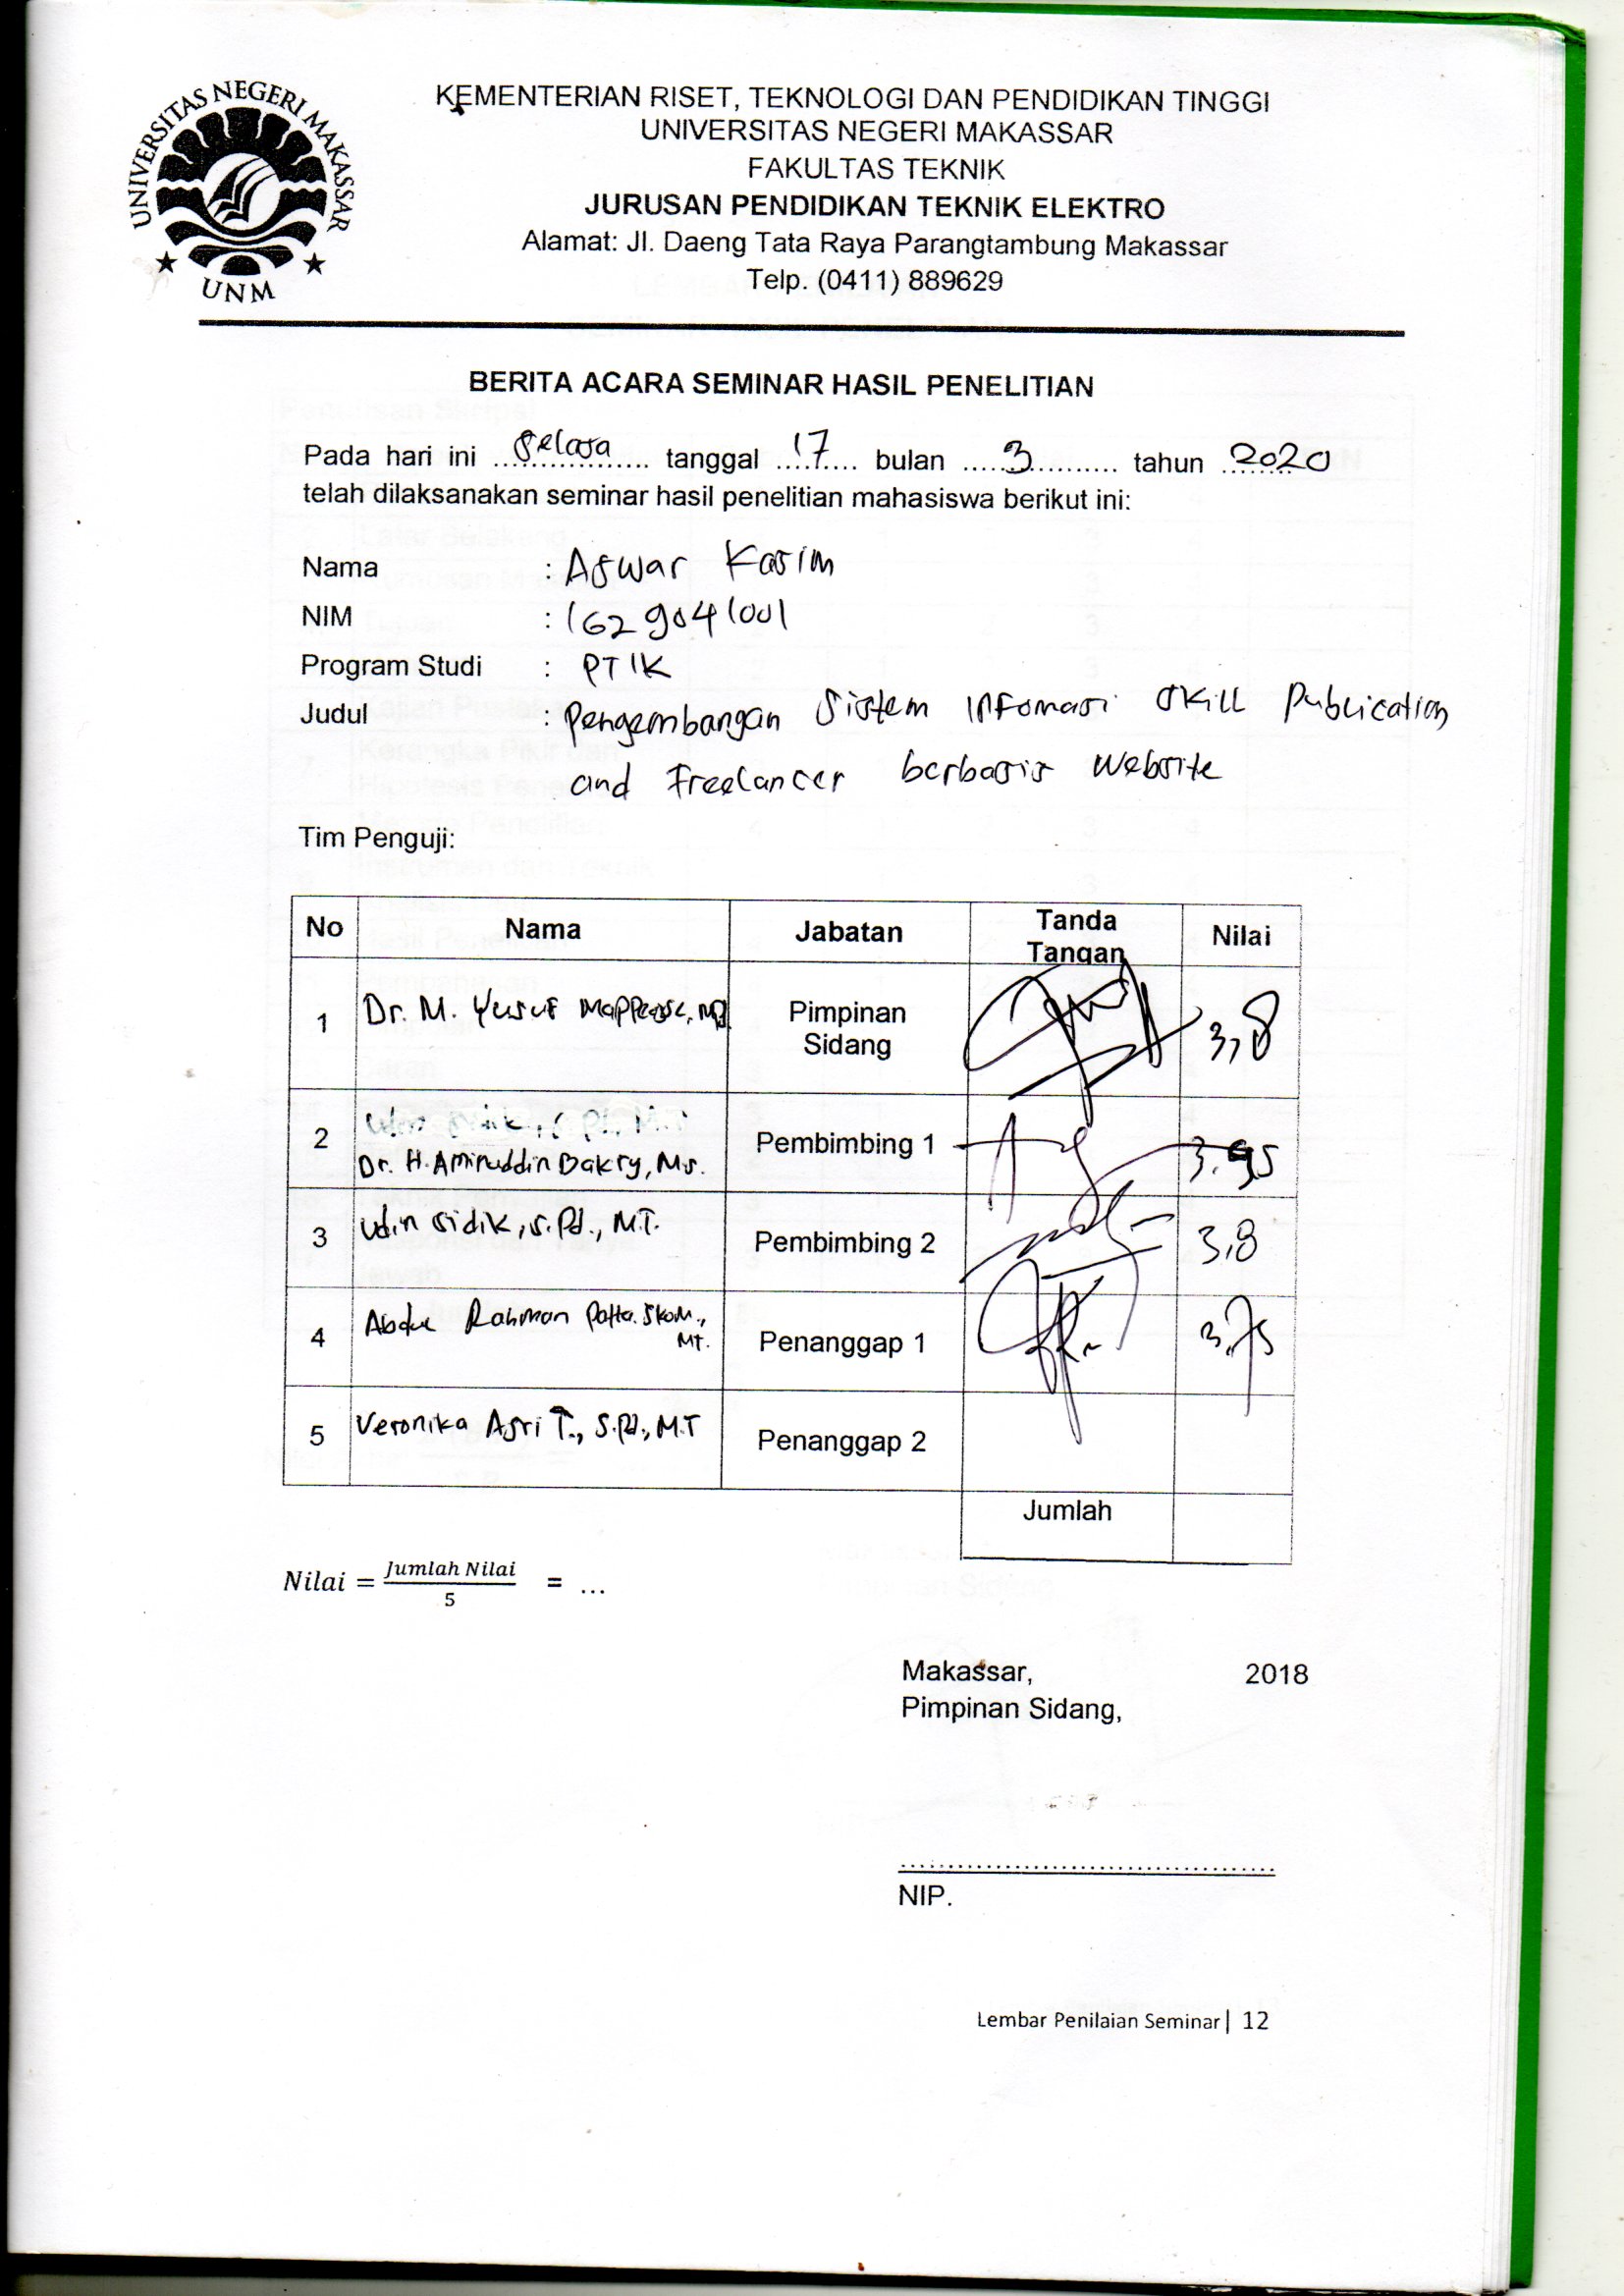 UNIVERSITAS NEGERI MAKASSAR
UNM
KEMENTERIAN RISET, TEKNOLOGI DAN PENDIDIKAN TINGGI
UNIVERSITAS NEGERI MAKASSAR
FAKULTAS TEKNIK
JURUSAN PENDIDIKAN TEKNIK ELEKTRO
Alamat: Jl. Daeng Tata Raya Parangtambung Makassar
Telp. (0411) 889629
BERITA ACARA SEMINAR HASIL PENELITIAN
Pada hari ini Selasa tanggal 17 bulan 3 tahun 2020
telah dilaksanakan seminar hasil penelitian mahasiswa berikut ini:
Nama : Aswar Kasim
NIM : 1629041001
Program Studi : PTIK
Judul : Pengembangan Sistem Infomasi Skill Publication
and Freelancer berbasis Website
Tim Penguji:
No Nama Jabatan Tanda Tangan Nilai
1 Dr. M. Yusuf Pimpinan Sidang 3,8
2 Dr. H. Aminuddin Bakry, Ms. Pembimbing 1 3.95
3 Udin Sidik, S.Pd., M.T. Pembimbing 2 3,8
4 Abdul Rahman Patta. SKom., MT. Penanggap 1 3.75
5 Veronika Asri T., S.Pd., M.T Penanggap 2
Jumlah
Nilai = Jumlah Nilai / 5 = ...
Makassar, 2018
Pimpinan Sidang,
NIP.
Lembar Penilaian Seminar| 12